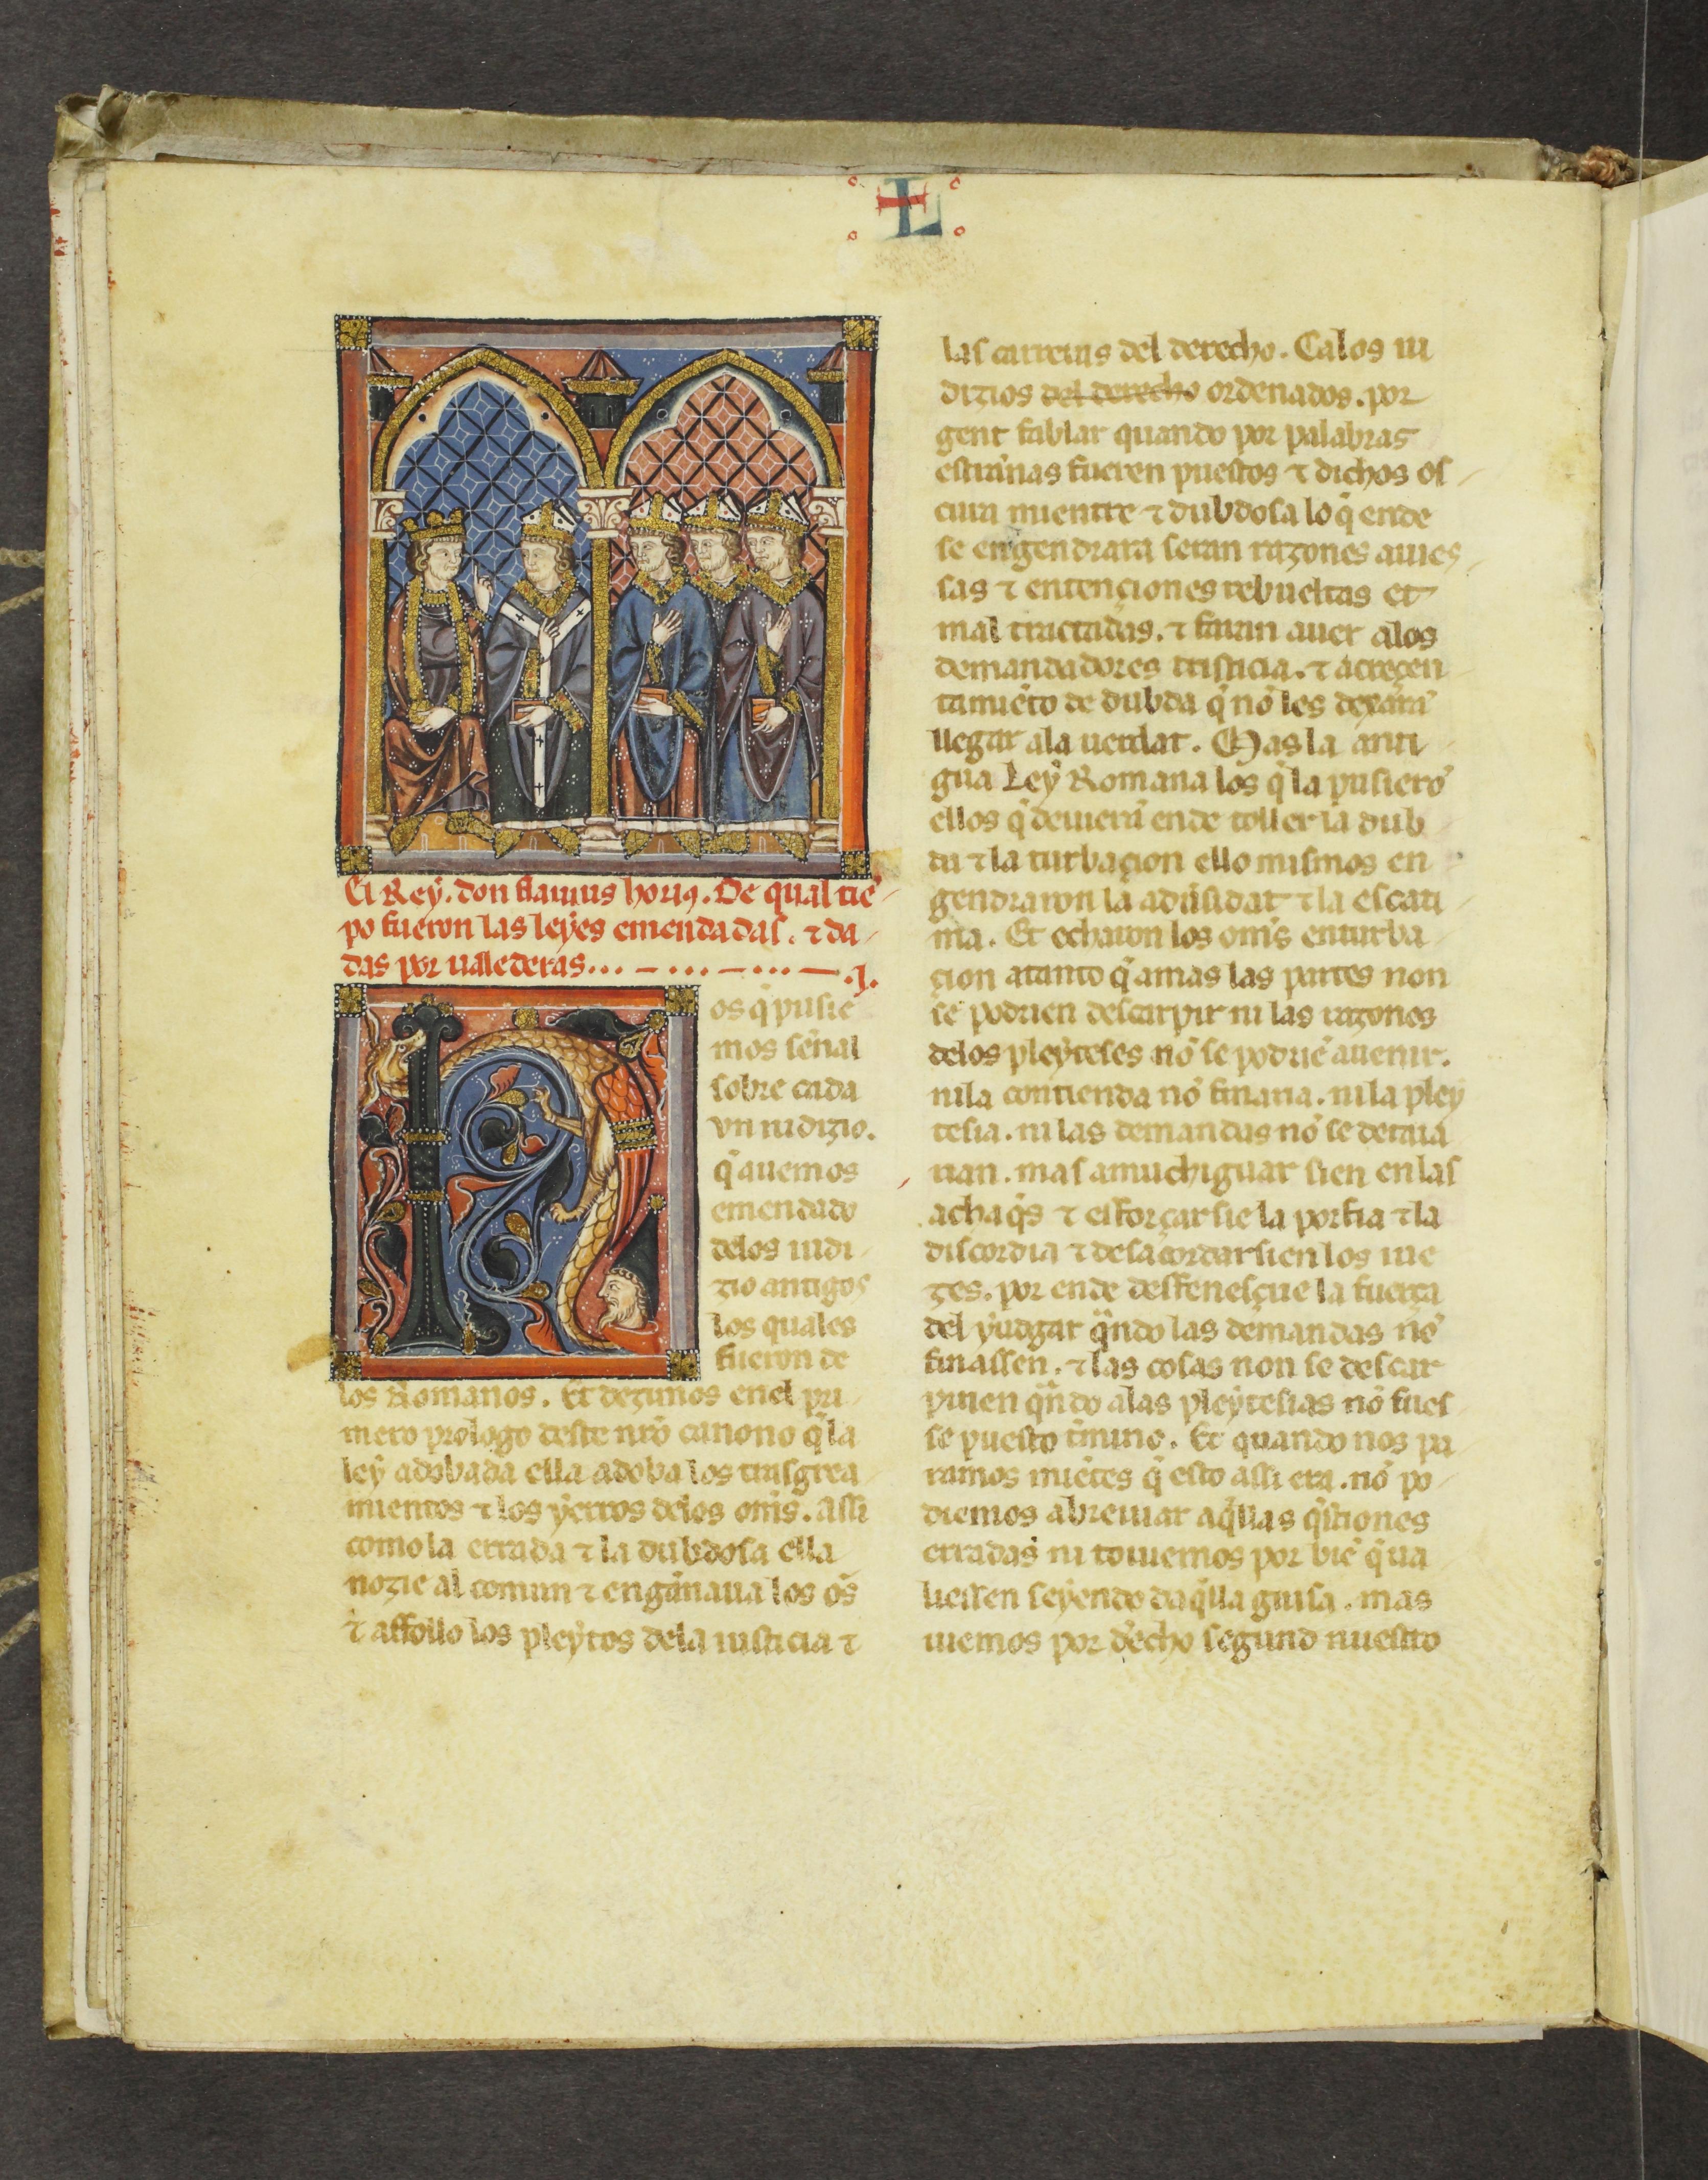 Ł
El Rey. don flauius horiꝯ. De qual tiē
po fueron las leyes emendadas. ⁊ da
das por ualederas... — ... — ... — .J.
N
os q̄ pusie
mos señal
sobre cada
vn iudizio.
q̄ auemos
emendado
delos iudi
zio antigos
los quales
fueron de
los Romanos. Et dezimos enel pri
mero prologo deste nrō canono q̄ la
ley adobada ella adoba los trasgrea
mientos ⁊ los yerros delos om̄s. assi
como la errada ⁊ la dubdosa ella
nozie al comun ⁊ engãnaua los os̄
⁊ affollo los pleytos dela iusticia ⁊
las carreras del derecho. Ca los iu
dizios del derecho ordenados. por
gent fablar quando por palabras
estrãnas fueren puestos ⁊ dichos os
cura mientre ⁊ dubdosa lo q̄ ende
se engendrara seran razones auies
sas ⁊ entenciones rebueltas et
mal tractadas. ⁊ faran auer alos
demandadores tristicia. ⁊ acreçen
tamiēto de dubda q̄ nō les dexarā
llegar ala uerdat. Mas la anti
gua Ley Romana los q̄ la pusierō
ellos q̄ deuierā ende toller la dub
da ⁊ la turbaçion ello mismos en
gendraron la aduersidat ⁊ la escati
ma. Et echaron los om̄s enturba
çion atanto q̄ amas las partes non
se podrien descarpir ni las razones
delos pleyteses nō se podriē auenir.
ni la contienda nō finaria. ni la pley
tesia. ni las demandas nō se detaia
rian. mas amuchiguar sien en las
achaq̄s ⁊ esforçar sie la porfia ⁊ la
discordia ⁊ desacordar sien los iue
zes. por ende desfenesçie la fuerça
del yudgar q̄ndo las demandas nō
finassen. ⁊ las cosas non se descar
pirien q̄ndo alas pleytesias nō fues
se puesto t̄mino. Et quando nos pa
ramos miētes q̄ esto assi era. nō po
diemos abreuiar aq̄llas q̄stiones
erradas ni touiemos por biē q̄ ua
liessen seyendo daq̄lla guisa. mas
uiemos por d̄echo segund nuestro